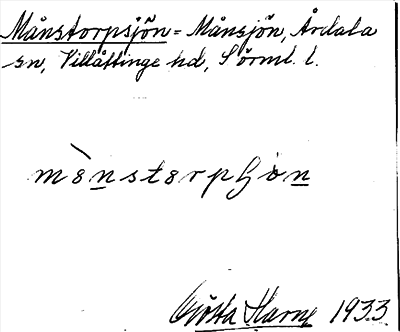 Månstorpsjön = Månsjön, Årdala
sn, Villåttinge hd, Sörml. l.
Gösta Harne 1933